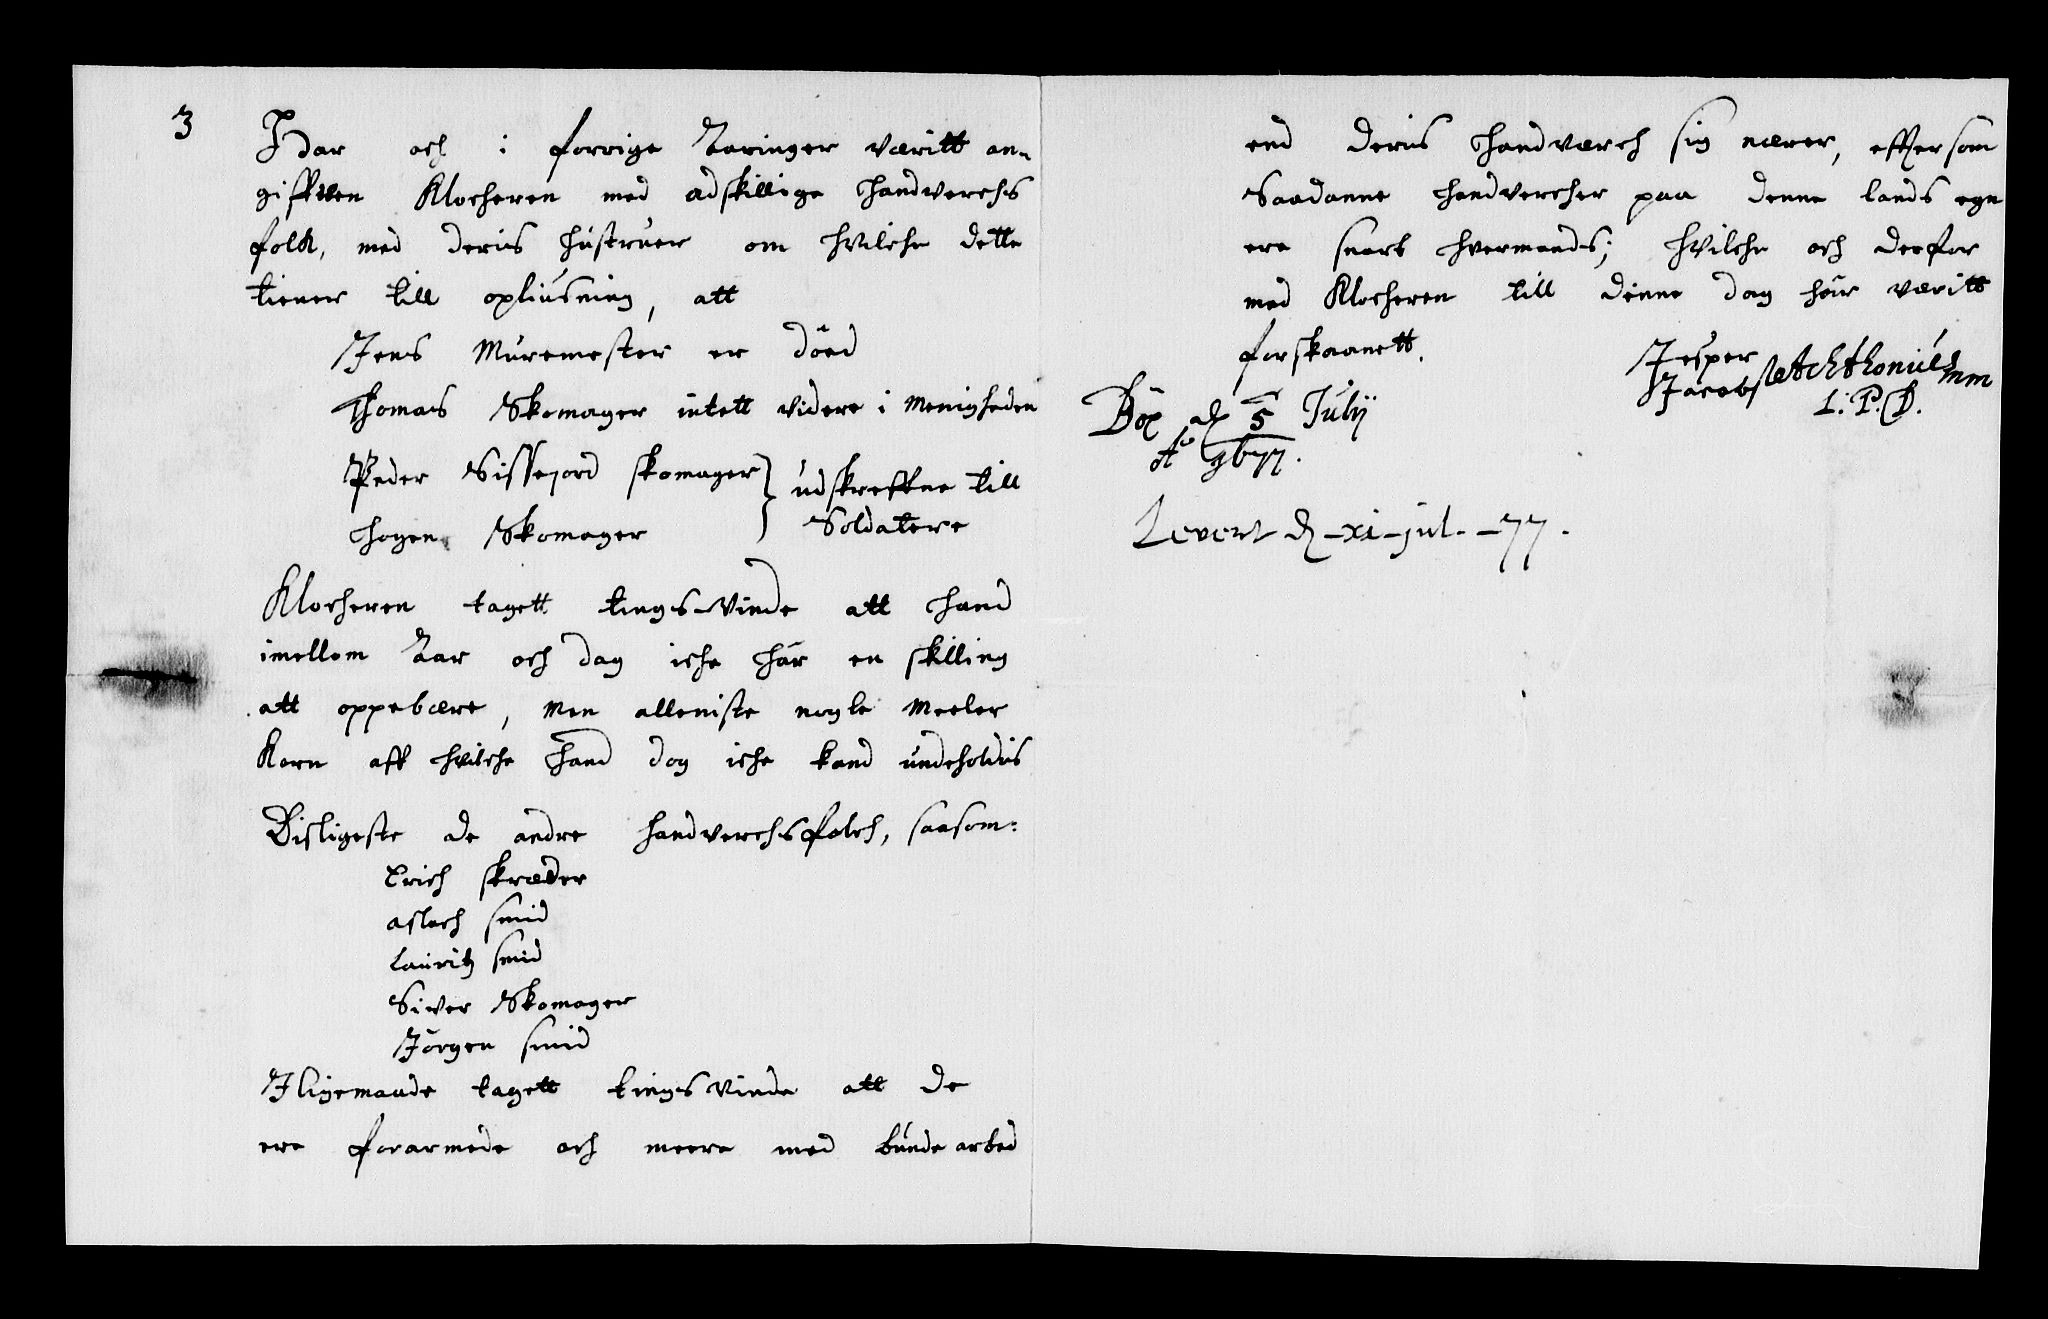 3
Idar och i forrige Aaringer væritt an=
gifftven Klocheren med adskillige Handverchs
folch, med deris Hustruer om hvilche dette
tiener till opliusning, att
Jens Muremester er död
Thomas Skomager intett videre i Menigheden
Peder Siffejord skomager } udskreffne till
Hogen Skomager Soldatere
Klocheren tagett tingsvinde att Hand
imellom Aar och dag iche Har en skilling
att oppebære, men alleniste nogle Meeler
Korn aff Hvilche Hand dog iche kand undeholdis
Disligeste de andre handverchsfolch, saasom:
Erich skræder
aslach smid
Lauritz smid
Siver Skomager
Jörgen smid
Iligemaade tagett tingsvinde att de
ere forarmede och meere med bunde arbed
end deris Handværch sig nærer, effter som
Saadanne Handvercher paa denne lands egn
ere snart Hvermands; Hvilche och derfor
med Klocheren till denne dag hår væritt
forskaanett.
Jesper
Jacobs Achthonius mm
L: P. D.
Böe d 5 Julij
Ao 1677.
Levert d - xi - jul. - 77.